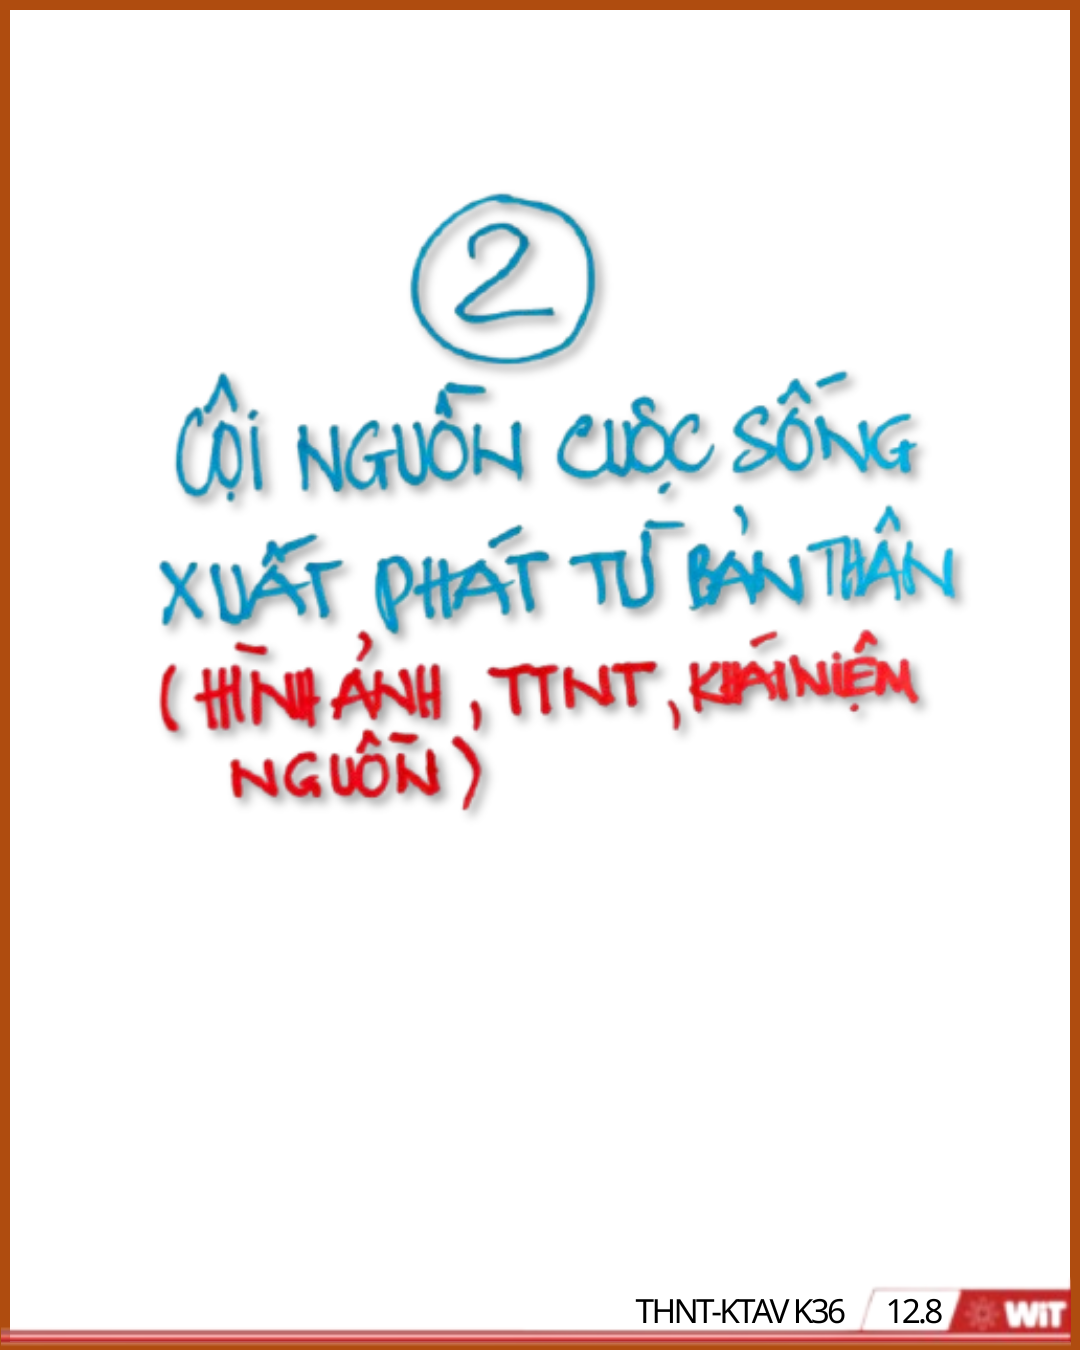 2
CỘI NGUỒN CUỘC SỐNG
XUẤT PHÁT TỪ BẢN THÂN
(HÌNH ẢNH, TTNT, KHÁI NIỆM
NGUỒN)
THNT-KTAV K36 12.8 WiT